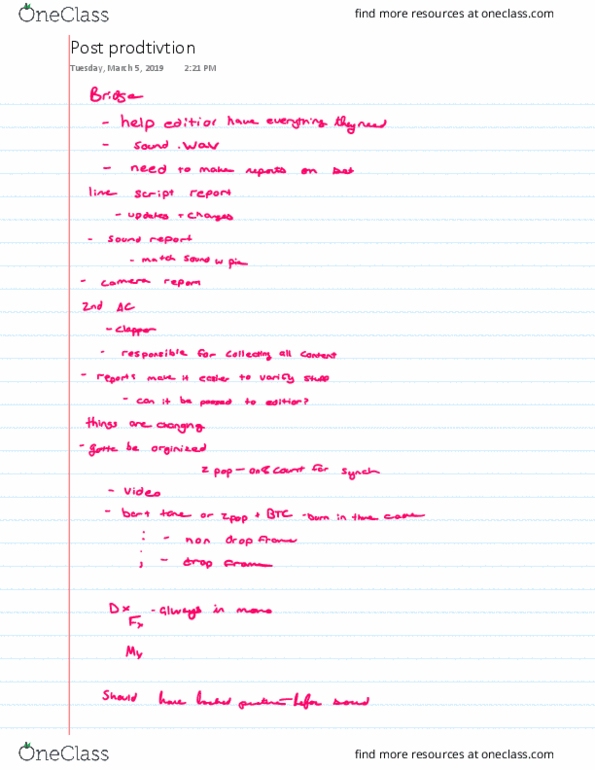 OneClass find more resources at oneclass.com
Post prodtivtion
Tuesday, March 5, 2019 2:21 PM
Bridge
- help editior have everything they need
- sound .wav
- need to make reports on set
line script report
- updates + changes
- sound report
- match sound w pic
- camera report
2nd AC
- clapper
- responsible for collecting all content
- reports make it easier to varify stuff
- can it be passed to editior?
things are changing
- gotta be orginized
2 pop - one count for synch
- video
- bart tone or 2pop + BTC - burn in time code
: - non drop frame
; - drop frame
Dx - always in mono
Fx
My
Should have locked before sound
OneClass find more resources at oneclass.com